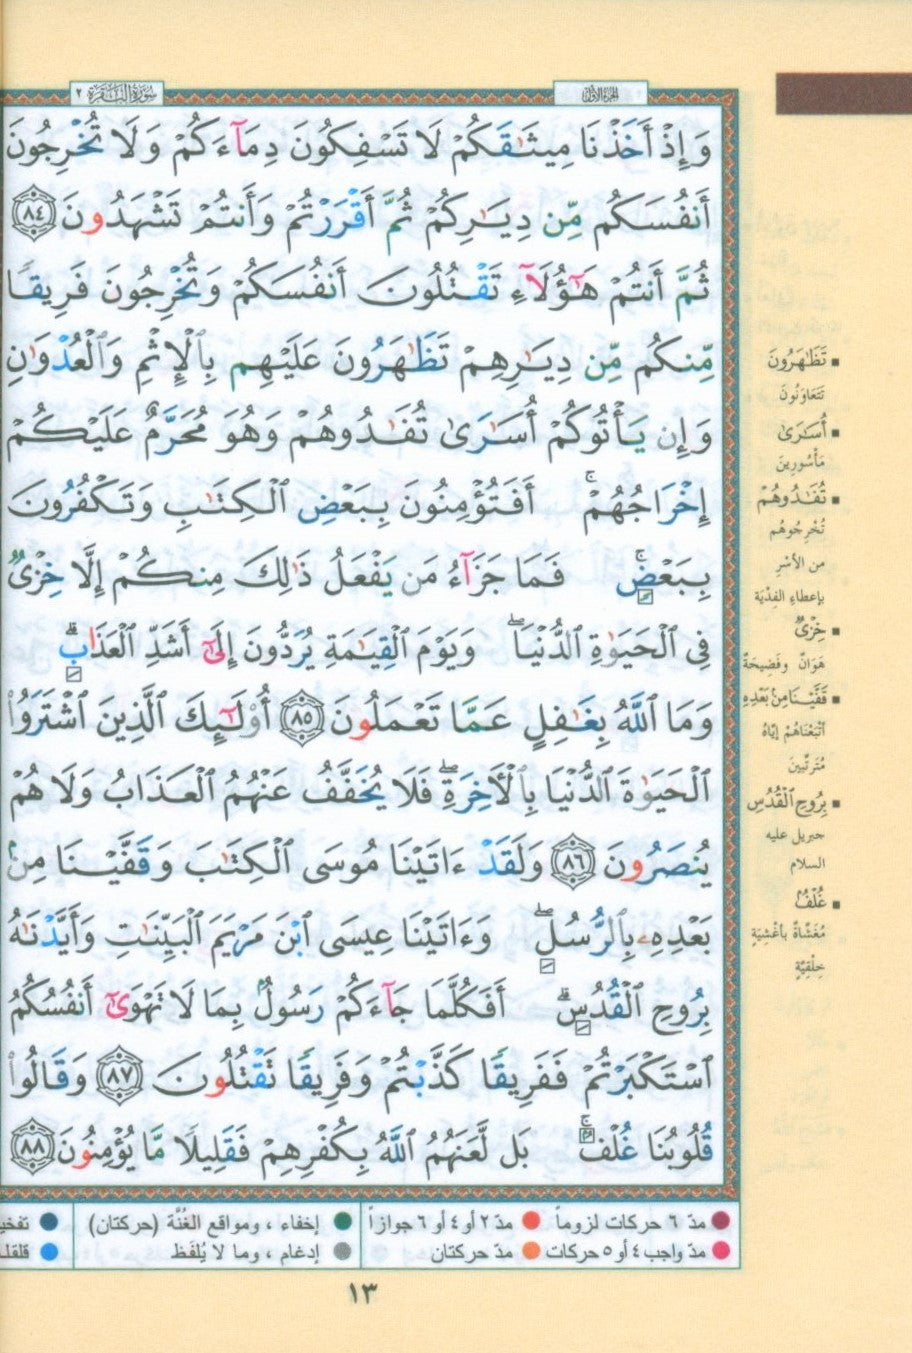 سُورَةُ البَقَرَة ٢
الجزء الأول
وَإِذْ أَخَذْنَا مِيثَـٰقَكُمْ لَا تَسْفِكُونَ دِمَآءَكُمْ وَلَا تُخْرِجُونَ
أَنفُسَكُم مِّن دِيَـٰرِكُمْ ثُمَّ أَقْرَرْتُمْ وَأَنتُمْ تَشْهَدُونَ ٨٤
ثُمَّ أَنتُمْ هَـٰٓؤُلَآءِ تَقْتُلُونَ أَنفُسَكُمْ وَتُخْرِجُونَ فَرِيقًا
مِّنكُم مِّن دِيَـٰرِهِمْ تَظَـٰهَرُونَ عَلَيْهِم بِٱلْإِثْمِ وَٱلْعُدْوَٰنِ
وَإِن يَأْتُوكُمْ أُسَـٰرَىٰ تُفَـٰدُوهُمْ وَهُوَ مُحَرَّمٌ عَلَيْكُمْ
إِخْرَاجُهُمْ ۚ أَفَتُؤْمِنُونَ بِبَعْضِ ٱلْكِتَـٰبِ وَتَكْفُرُونَ
بِبَعْضٍ ۚ فَمَا جَزَآءُ مَن يَفْعَلُ ذَٰلِكَ مِنكُمْ إِلَّا خِزْىٌ
فِى ٱلْحَيَوٰةِ ٱلدُّنْيَا ۖ وَيَوْمَ ٱلْقِيَـٰمَةِ يُرَدُّونَ إِلَىٰٓ أَشَدِّ ٱلْعَذَابِ ۗ
وَمَا ٱللَّهُ بِغَـٰفِلٍ عَمَّا تَعْمَلُونَ ٨٥ أُو۟لَـٰٓئِكَ ٱلَّذِينَ ٱشْتَرَوُا۟
ٱلْحَيَوٰةَ ٱلدُّنْيَا بِٱلْـَٔاخِرَةِ ۖ فَلَا يُخَفَّفُ عَنْهُمُ ٱلْعَذَابُ وَلَا هُمْ
يُنصَرُونَ ٨٦ وَلَقَدْ ءَاتَيْنَا مُوسَى ٱلْكِتَـٰبَ وَقَفَّيْنَا مِنۢ
بَعْدِهِۦ بِٱلرُّسُلِ ۖ وَءَاتَيْنَا عِيسَى ٱبْنَ مَرْيَمَ ٱلْبَيِّنَـٰتِ وَأَيَّدْنَـٰهُ
بِرُوحِ ٱلْقُدُسِ ۗ أَفَكُلَّمَا جَآءَكُمْ رَسُولٌۢ بِمَا لَا تَهْوَىٰٓ أَنفُسُكُمُ
ٱسْتَكْبَرْتُمْ فَفَرِيقًا كَذَّبْتُمْ وَفَرِيقًا تَقْتُلُونَ ٨٧ وَقَالُوا۟
قُلُوبُنَا غُلْفٌۢ ۚ بَل لَّعَنَهُمُ ٱللَّهُ بِكُفْرِهِمْ فَقَلِيلًا مَّا يُؤْمِنُونَ ٨٨
تَظَـٰهَرُونَ
تَتَعَاوَنُونَ
أُسَـٰرَىٰ
مَأْسُورِينَ
تُفَـٰدُوهُمْ
تُخْرِجُوهُم
مِن الأسْرِ
بإعطاءِ الفِدْيَة
خِزْىٌ
هَوَانٌ وفَضِيحَةٌ
قَفَّيْنَا مِنۢ بَعْدِهِ
أَتْبَعْنَاهُمْ إيَّاهُ
مُتَرتِّبينَ
بِرُوحِ ٱلْقُدُسِ
جبريل عليه
السلام
غُلْفٌ
مُغَشَّاةٌ بأغْشِيَةٍ
خِلْقِيَّةٍ
مدّ ٦ حركات لزوماً مدّ ٢ أو ٤ أو ٦ جوازاً إخفاء ، ومواقع الغُنَّة (حركتان)
مدّ واجب ٤ أو ٥ حركات مدّ حركتان إدغام ، وما لا يُلفَظ
١٣